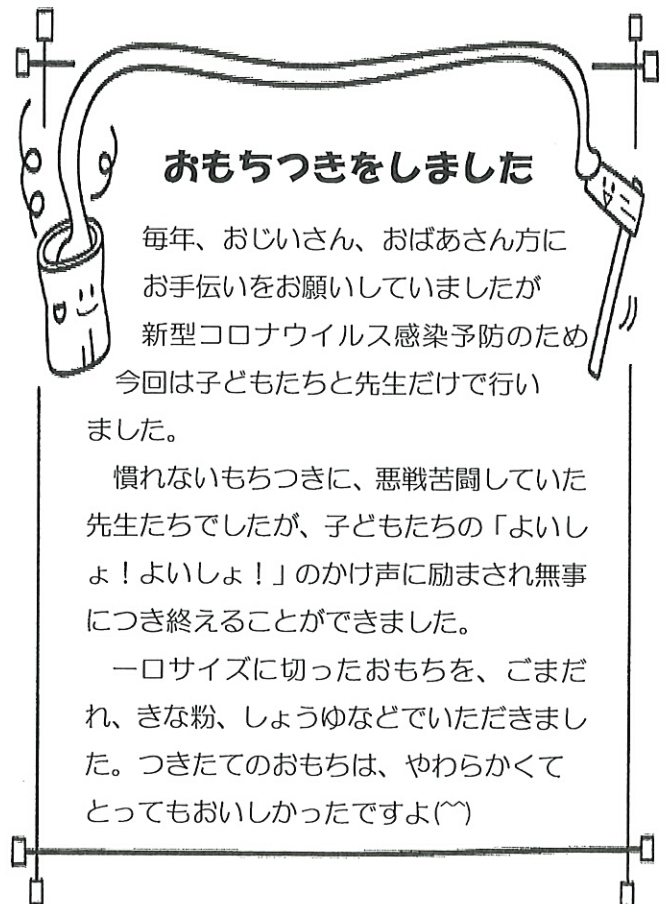 おもちつきをしました
毎年、おじいさん、おばあさん方に
お手伝いをお願いしていましたが
新型コロナウイルス感染予防のため
今回は子どもたちと先生だけで行い
ました。
慣れないもちつきに、悪戦苦闘していた
先生たちでしたが、子どもたちの「よいし
ょ！よいしょ！」のかけ声に励まされ無事
につき終えることができました。
一口サイズに切ったおもちを、ごまだ
れ、きな粉、しょうゆなどでいただきまし
た。つきたてのおもちは、やわらかくて
とってもおいしかったですよ(^^)